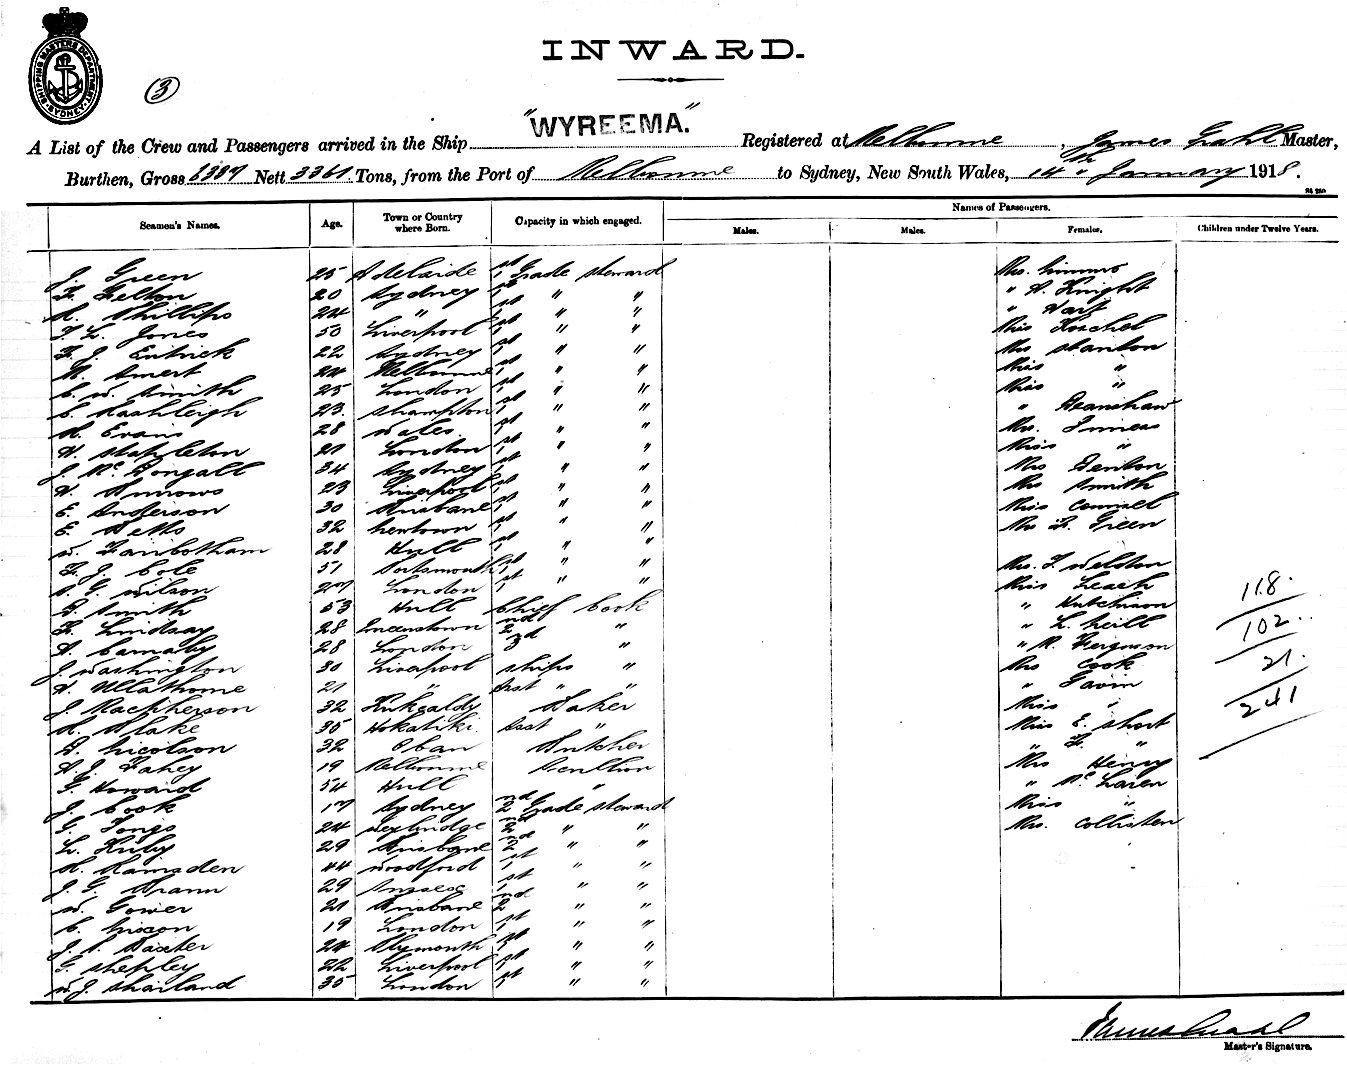 SHIPPING MASTERS DEPARTMENT
SYDNEY
INWARD.
3
A List of the Crew and Passengers arrived in the Ship "WYREEMA." Registered at Melbourne, James Grahl Master,
Burthen, Gross 6387 Nett 3361 Tons, from the Port of Melbourne to Sydney, New South Wales, 14th January 1918.
Names of Passengers.
Seamen's Names. Age. Town or Country where Born. Capacity in which engaged. Males. Males. Females. Children under Twelve Years.
J. Green 25 Adelaide 1st Grade Steward Mrs. Simms
F. Felton 20 Sydney 1st " " " A. Knight
A. Phillips 24 " 1st " " " Hart
T. L. Jones 50 Liverpool 1st " " Miss Koschel
F. J. Entrick 22 Sydney 1st " " Mrs Stanton
24 Melbourne 1st " " Miss "
C. W. Smith 25 London 1st " " Miss "
C. Rashleigh 23 Shampton 1st " " " Deanshaw
A. Evans 28 Wales 1st " " Mrs.
H. Stapleton 21 London 1st " " Miss "
J. McDongall 34 Sydney 1st " " Mrs Denton
23 Liverpool 1st " " Mrs Smith
E. Anderson 30 Brisbane 1st " " Miss Connell
E. Betts 32 Newtown 1st " " Mrs F. Green
W. Fairbotham 28 Hull 1st " "
F. J. Cole 51 Portsmouth 1st " " Mrs. F. Weldon
G. Wilson 27 London 1st " " Miss Leach
D. Smith 53 Hull Chief Cook " Hutchison
F. Lindsay 28 Queenstown 2nd " " L. Neill
A. Barnaby 28 London 3rd " R. Ferguson
J. Washington 30 Liverpool Ships " Mrs Cook
H. Ullathorne 21 " Asst " " " Gavin
J. Macpherson 32 Kirkcaldy Baker Miss "
A. Blake 35 Hokatiki Asst " Miss E. Short
D. Nicolson 32 Oban Butcher " F. "
A. J. Fahey 19 Melbourne Scullion Mrs Henry
G. Howard 54 Hull " " McLaren
J. Cook 17 Sydney 2nd Grade Steward Miss "
G. Tongs 24 Weybridge 2nd " " Mrs. Collisten
L. Kirby 29 Brisbane 2nd " "
A. Ramsden 44 Woodford 1st " "
J. G. Brann 29 1st " "
W. Gower 21 Brisbane 2nd " "
C. Nixon 19 London 1st " "
J. P. Baxter 24 Plymouth 1st " "
G. Shepley 22 Liverpool 1st " "
W. J. Sharland 35 London 1st " "
118.
102.
21.
241
James Grahl
Master's Signature.